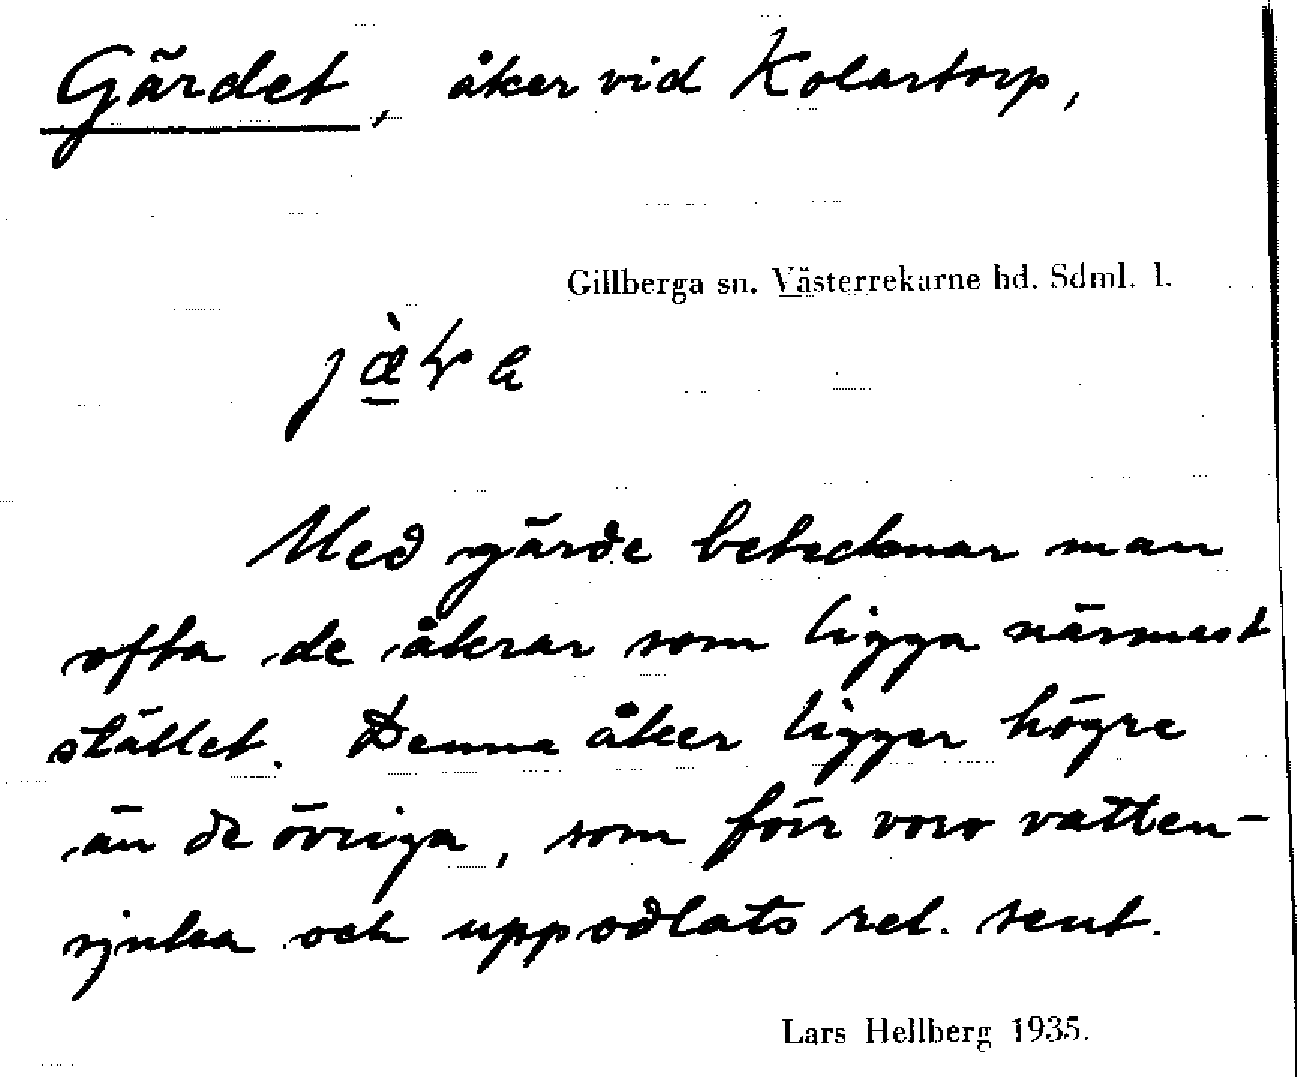 Gärdet, åker vid Kolartorp,
Gillberga sn. Västerrekarne hd. Sdml. l.
Med gärde betecknar man
ofta de åkrar som ligga närmast
stället. Denna åker ligger högre
än de övriga, som förr voro vatten-
sjuka och uppodlats rel. sent.
Lars Hellberg 1935.